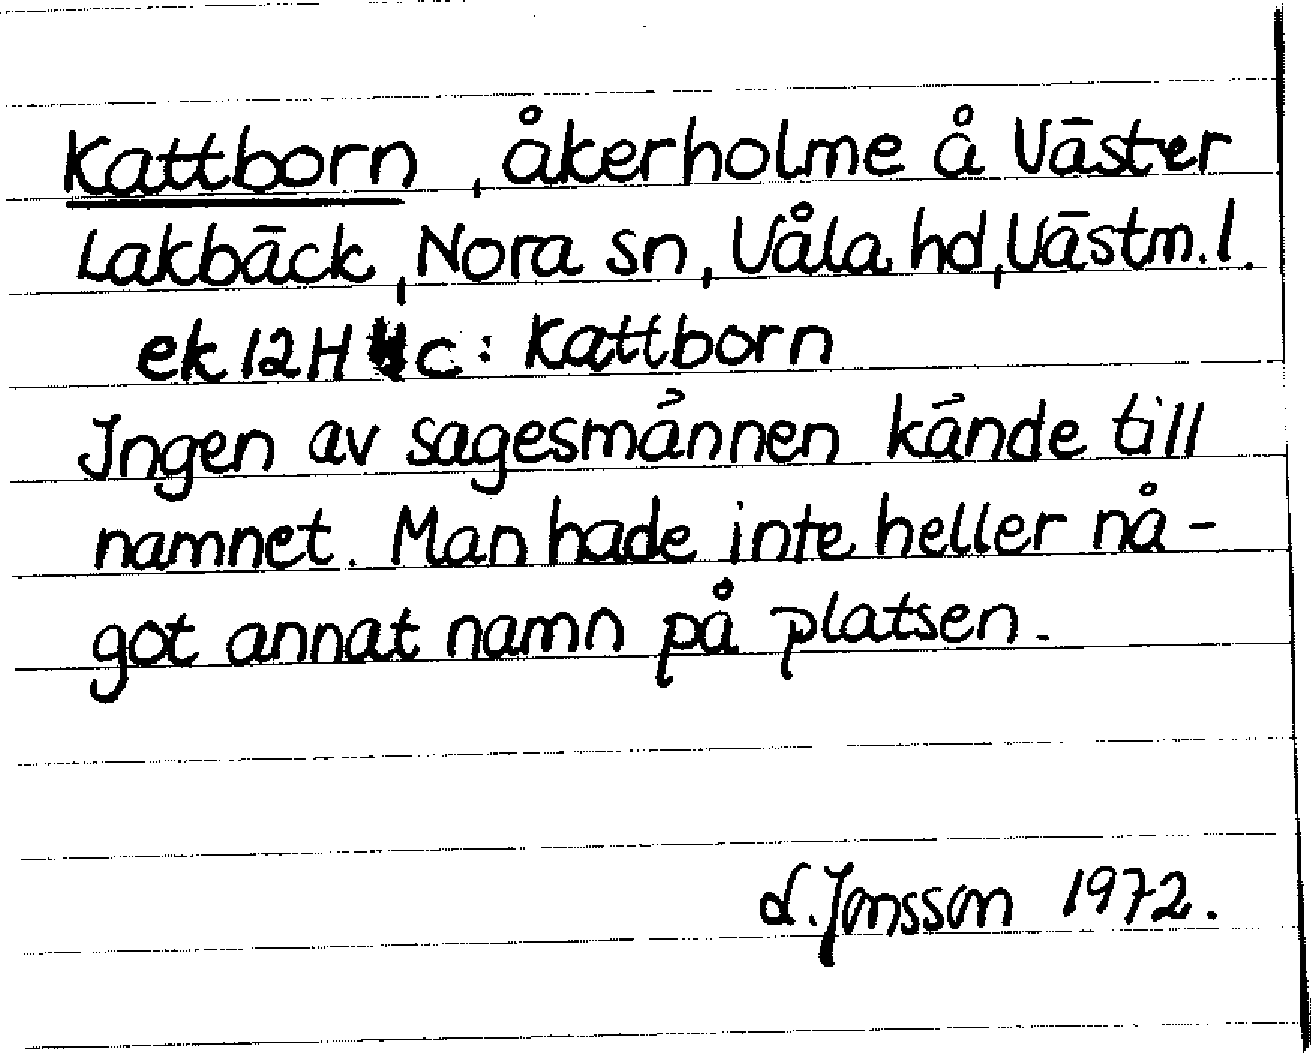 Kattborn, åkerholme å Väster
Lakbäck, Nora sn, Våla hd, Västm.l.
ek 12H 4c: Kattborn
Ingen av sagesmännen kände till
namnet. Man hade inte heller nå-
got annat namn på platsen.
L. Jonsson 1972.